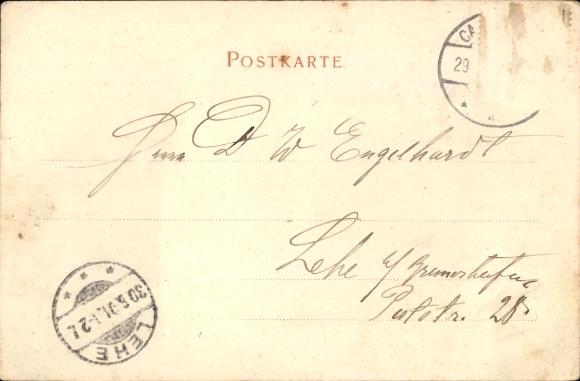 POSTKARTE
CA
29
Herrn D W Engelhardt
Lehe b/ Bremerhafen
Poststr. 28
30.5.01. 1-2 N.
LEHE